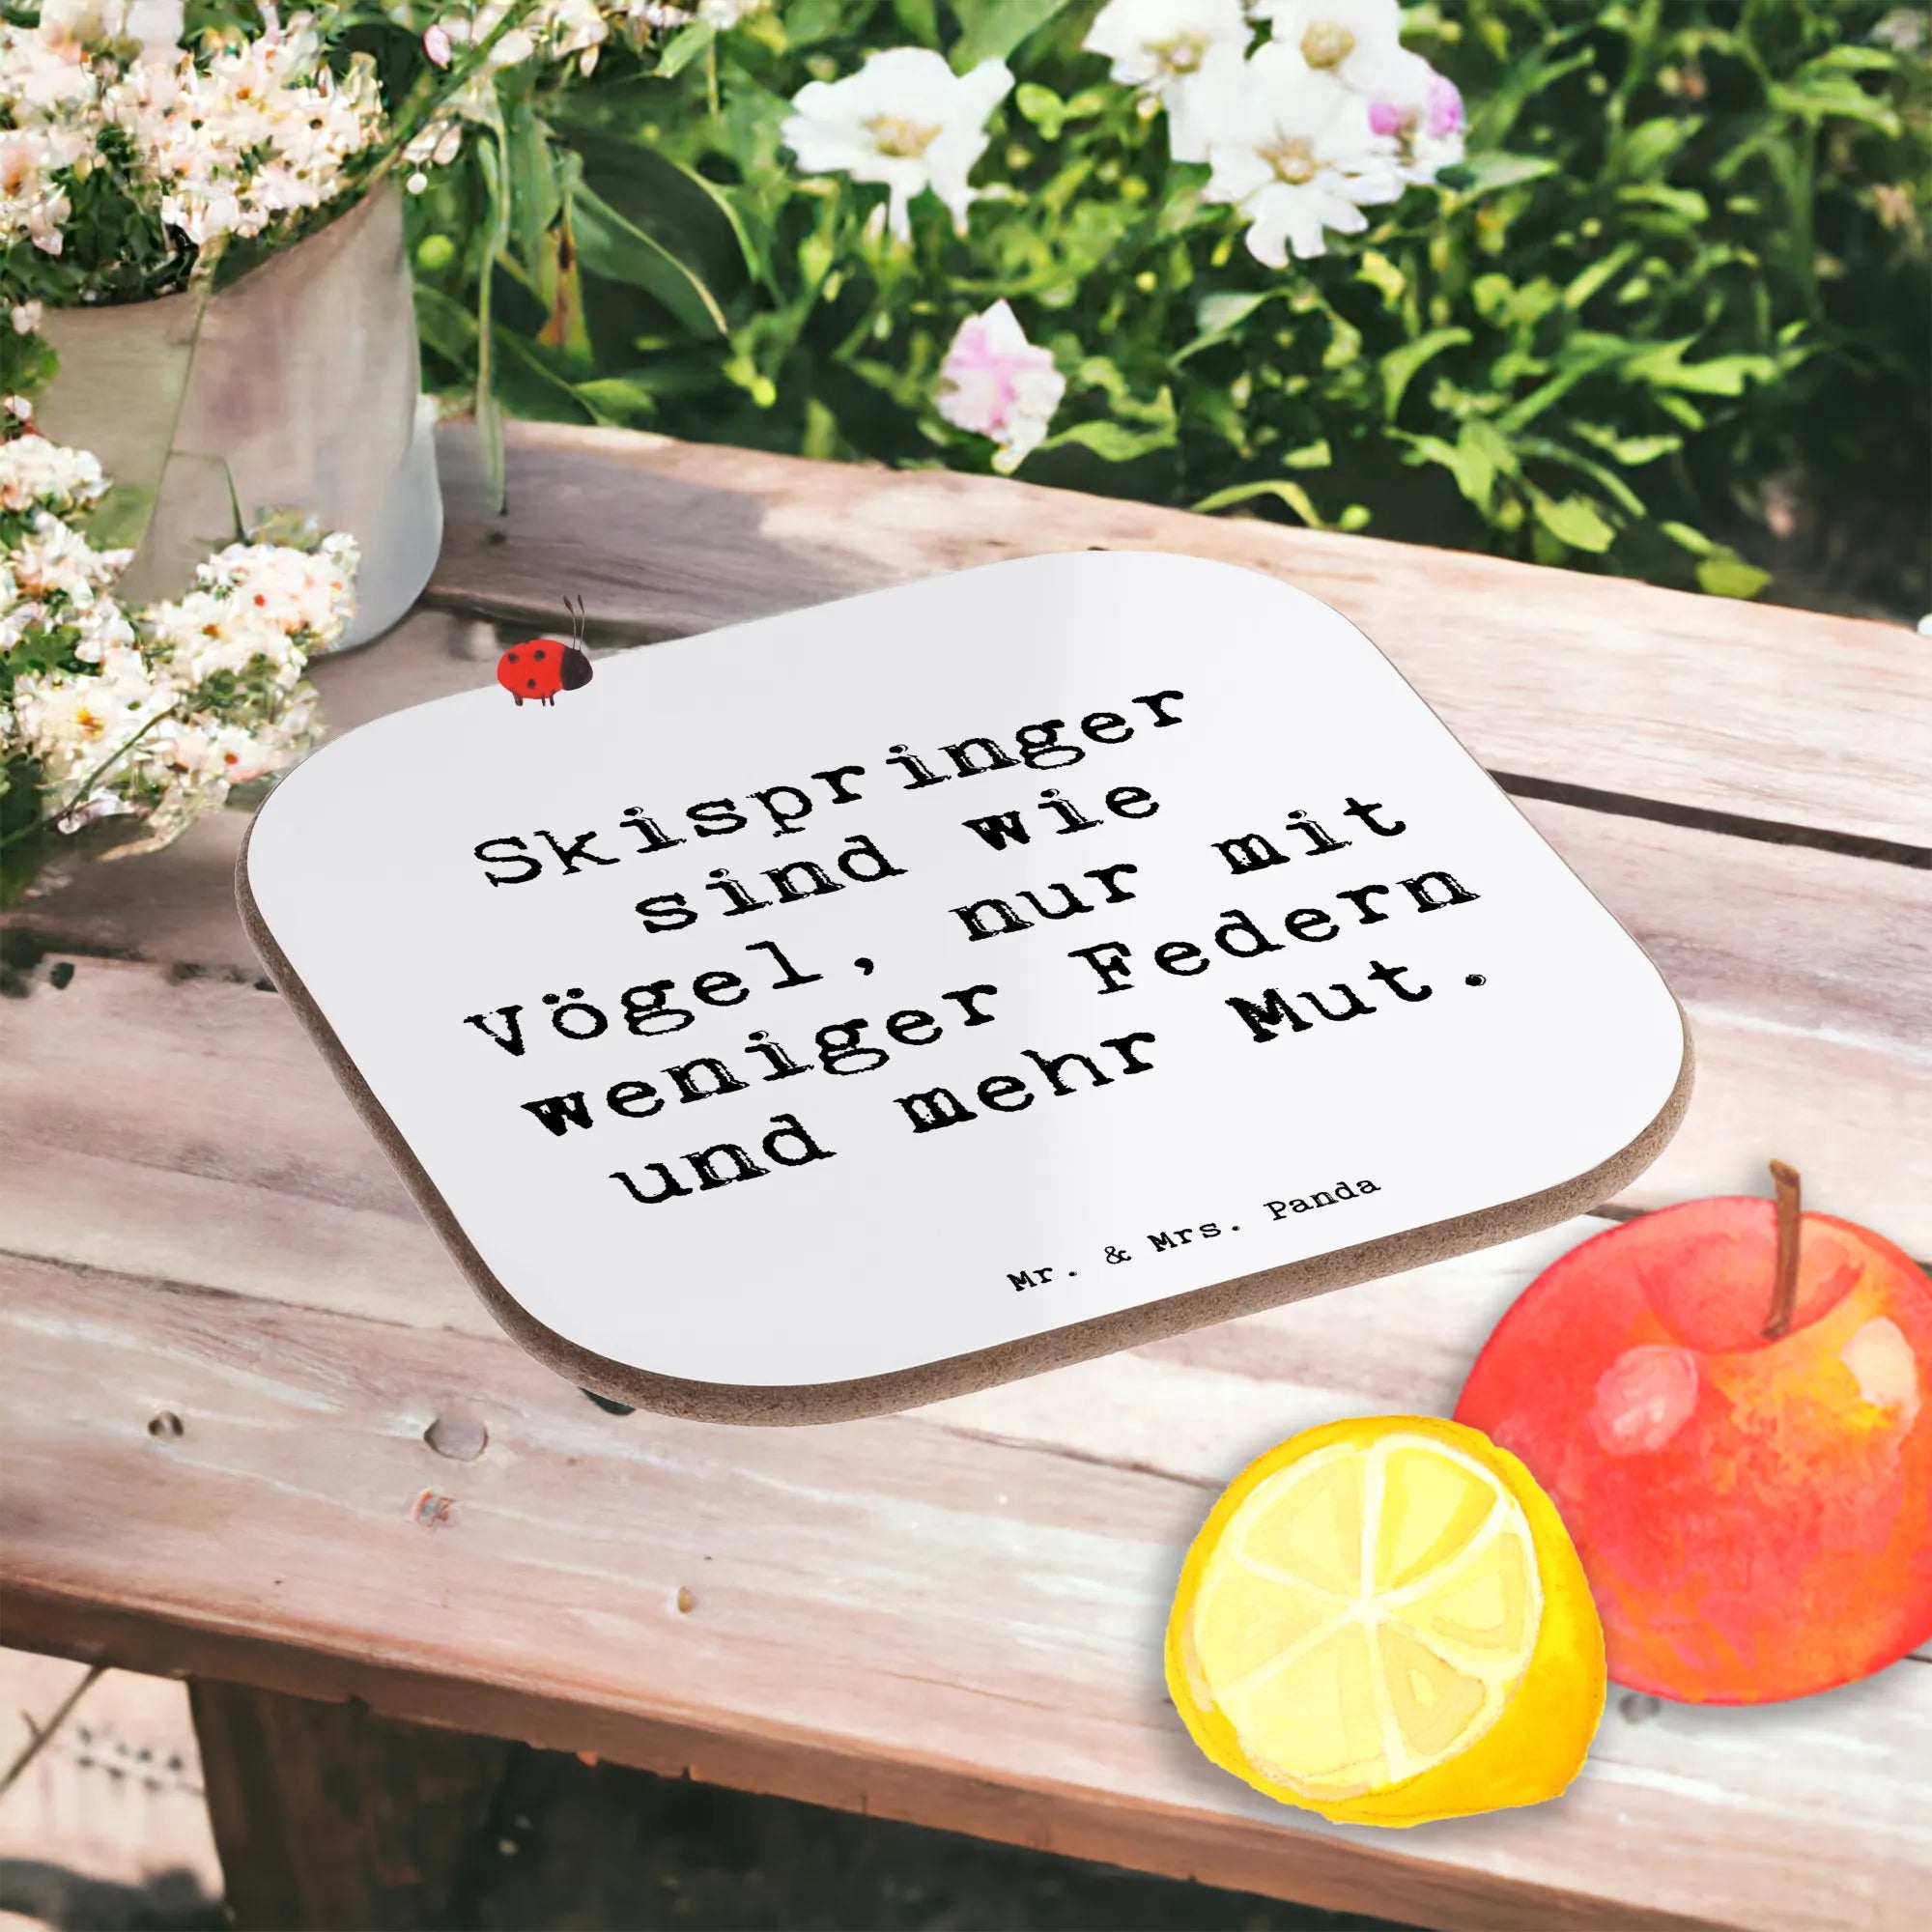 Skispringer
sind wie
Vögel, nur mit
weniger Federn
und mehr Mut.
Mr. & Mrs. Panda